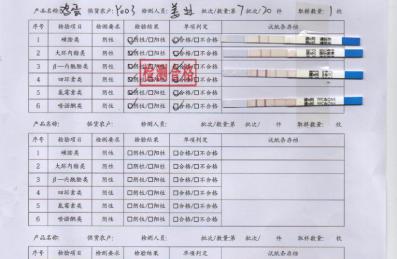 产品名称: 鸡蛋 供货农户: Y003 检测人员: 批次/数量第 7 批次/20 件 取样数量: 1 枚
序号 检验项目 检测要求 检验结果 单项判定 试纸条存档
1 磺胺类 阴性 ☑阴性/☐阳性 ☑合格/☐不合格
2 大环内酯类 阴性 ☑阴性/☐阳性 ☑合格/☐不合格
3 β—内酰胺类 阴性 ☑阴性/☐阳性 ☑合格/☐不合格
4 四环素类 阴性 ☑阴性/☐阳性 ☑合格/☐不合格
5 氟霉素类 阴性 ☑阴性/☐阳性 ☑合格/☐不合格
6 喹诺酮类 阴性 ☑阴性/☐阳性 ☑合格/☐不合格
检测合格
产品名称: 供货农户: 检测人员: 批次/数量第 批次/ 件 取样数量: 枚
序号 检验项目 检测要求 检验结果 单项判定 试纸条存档
1 磺胺类 阴性 ☐阴性/☐阳性 ☐合格/☐不合格
2 大环内酯类 阴性 ☐阴性/☐阳性 ☐合格/☐不合格
3 β—内酰胺类 阴性 ☐阴性/☐阳性 ☐合格/☐不合格
4 四环素类 阴性 ☐阴性/☐阳性 ☐合格/☐不合格
5 氟霉素类 阴性 ☐阴性/☐阳性 ☐合格/☐不合格
6 喹诺酮类 阴性 ☐阴性/☐阳性 ☐合格/☐不合格
产品名称: 供货农户: 检测人员: 批次/数量第 批次/ 件 取样数量: 枚
序号 检验项目 检测要求 检验结果 单项判定 试纸条存档